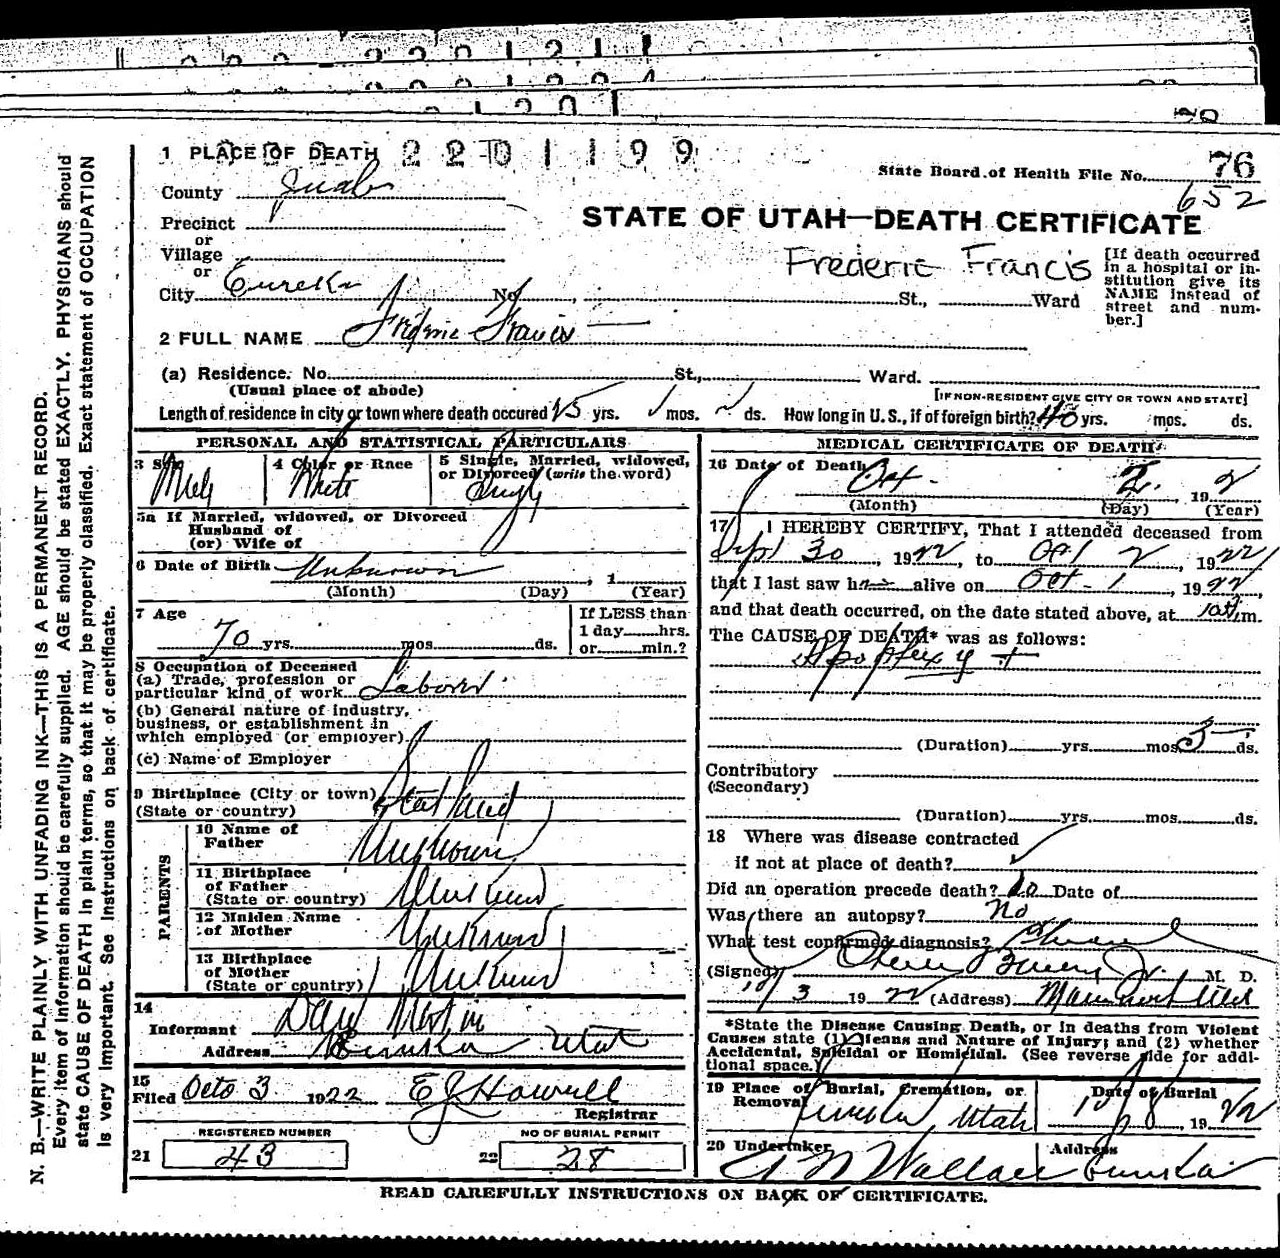 1 PLACE OF DEATH 2201199
State Board of Health File No. 76
652
County Juab
STATE OF UTAH—DEATH CERTIFICATE
Precinct
or
Village
or
City Eureka No. St., Ward
Frederic Francis
[If death occurred in a hospital or institution give its NAME instead of street and number.]
2 FULL NAME Frederic Francis
(a) Residence. No. St., Ward.
(Usual place of abode)
[IF NON-RESIDENT GIVE CITY OR TOWN AND STATE]
Length of residence in city or town where death occured yrs. mos. ds. How long in U. S., if of foreign birth? 40 yrs. mos. ds.
PERSONAL AND STATISTICAL PARTICULARS
3 Sex Male
4 Color or Race White
5 Single, Married, widowed, or Divorced (write the word) Single
5a If Married, widowed, or Divorced
Husband of
(or) Wife of
6 Date of Birth Unknown, 1
(Month) (Day) (Year)
7 Age
70 yrs. mos. ds.
If LESS than
1 day hrs.
or min.?
8 Occupation of Deceased
(a) Trade, profession or
particular kind of work Laborer
(b) General nature of industry,
business, or establishment in
which employed (or employer)
(c) Name of Employer
9 Birthplace (City or town)
(State or country)
PARENTS
10 Name of Father Unknown
11 Birthplace of Father
(State or country) Unknown
12 Maiden Name of Mother Unknown
13 Birthplace of Mother
(State or country) Unknown
14
Informant Martin
Address Eureka Utah
15
Filed Octo 3 1922 E J Howell
Registrar
REGISTERED NUMBER
21 43
NO OF BURIAL PERMIT
22 28
MEDICAL CERTIFICATE OF DEATH
16 Date of Death Oct. 2, 192
(Month) (Day) (Year)
17 I HEREBY CERTIFY, That I attended deceased from
Sept 30, 1922, to Oct 2, 1922
that I last saw h alive on Oct - 1, 1922,
and that death occurred, on the date stated above, at m.
The CAUSE OF DEATH* was as follows:
Apoplexy
(Duration) yrs. mos. 3 ds.
Contributory
(Secondary)
(Duration) yrs. mos. ds.
18 Where was disease contracted
if not at place of death?
Did an operation precede death? No Date of
Was there an autopsy? No
What test confirmed diagnosis?
(Signed) M. D.
10/3 1922 (Address)
*State the Disease Causing Death, or in deaths from Violent
Causes state (1) Means and Nature of Injury; and (2) whether
Accidental, Suicidal or Homicidal. (See reverse side for addi-
tional space.)
19 Place of Burial, Cremation, or
Removal Eureka, Utah
Date of Burial
20 Undertaker Wallace
Address Eureka
READ CAREFULLY INSTRUCTIONS ON BACK OF CERTIFICATE.
N. B.—WRITE PLAINLY WITH UNFADING INK—THIS IS A PERMANENT RECORD.
Every item of information should be carefully supplied. AGE should be stated EXACTLY. PHYSICIANS should
state CAUSE OF DEATH in plain terms, so that it may be properly classified. Exact statement of OCCUPATION
is very important. See instructions on back of certificate.